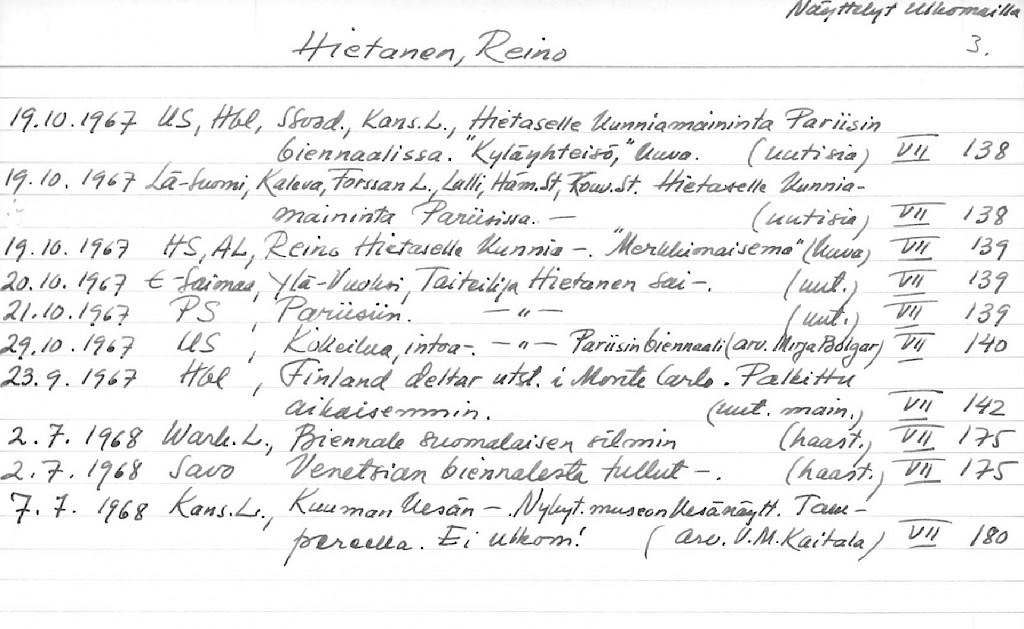 Näyttelyt Ulkomailla
3.
Hietanen, Reino
19.10.1967 US, Hbl, SSosd., Kans.L., Hietaselle Kunniamaininta Pariisin
biennaalissa. "Kyläyhteisö," kuva. (uutisia) VII 138
19.10.1967 Lä-Suomi, Kaleva, Forssan L., Lalli, Häm.St, Kouv.St. Hietaselle Kunnia-
maininta Pariisissa. — (uutisia) VII 138
19.10.1967 HS, AL, Reino Hietaselle Kunnia-. "Merkkimaisema" (kuva) VII 139
20.10.1967 E-Saimaa, Ylä-Vuoksi, Taiteilija Hietanen sai-. (uut.) VII 139
21.10.1967 PS , Pariisiin. —"— (uut.) VII 139
29.10.1967 US , Kokeilua, intoa-. —"— Pariisin biennaali (arv. Mirja Bolgar) VII 140
23.9.1967 Hbl , Finland deltar utst. i Monte Carlo. Palkittu
aikaisemmin. (uut. main.) VII 142
2.7.1968 Wark.L., Biennale suomalaisen silmin (haast.) VII 175
2.7.1968 Savo Venetsian biennalesta tullut-. (haast.) VII 175
7.7.1968 Kans.L., Kuuman Kesän-. Nykyt.museon Kesänäytt. Tam-
pereella. Ei ulkom! (arv. V.M.Kaitala) VII 180